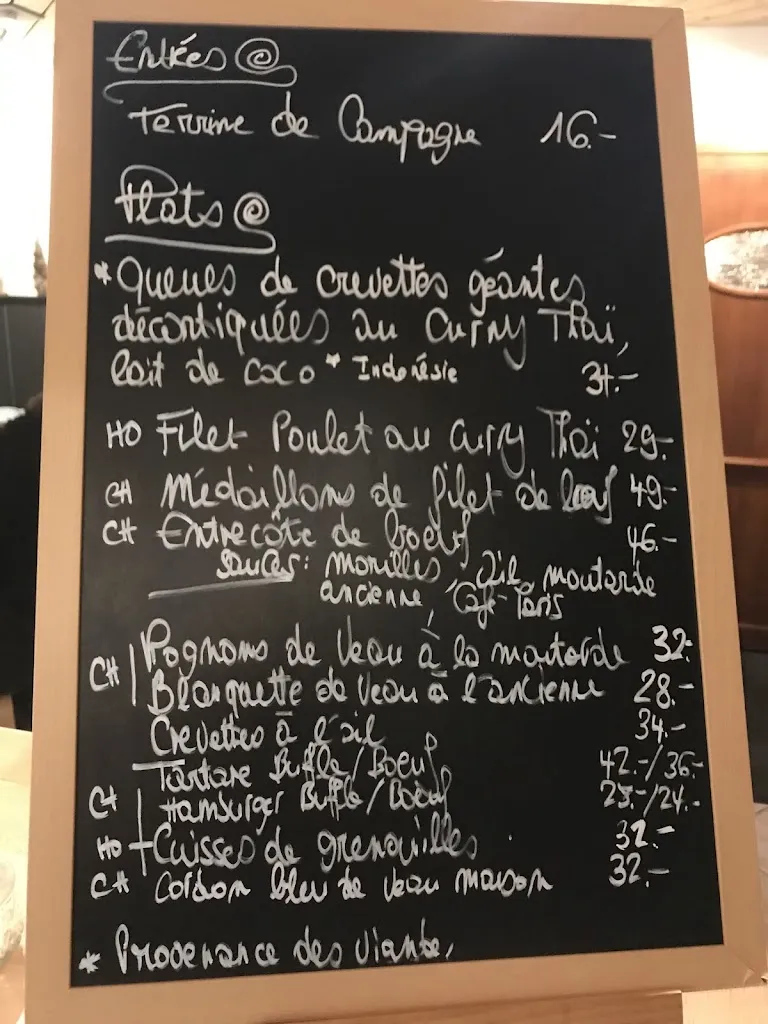 Entrées
Terrine de Campagne 16.-
Plats
* Queues de crevettes géantes
décortiquées au Curry Thaï,
lait de coco * Indonésie
HO Filet Poulet au curry Thaï 29.-
CH Médaillons de filet de boeuf 49.-
CH Entrecôte de boeuf 46.-
sauces: morilles, Ail, moutarde
ancienne, Café-Paris
CH Rognons de Veau à la moutarde 32.-
Blanquette de Veau à l'ancienne 28.-
Crevettes à l'ail 34.-
Tartare Buffle/Boeuf 42.-/36.-
CH Hamburger Buffle/Boeuf /24.-
HO Cuisses de grenouilles 32.-
CH Cordon bleu de veau maison 32.-
* Provenance des viande,